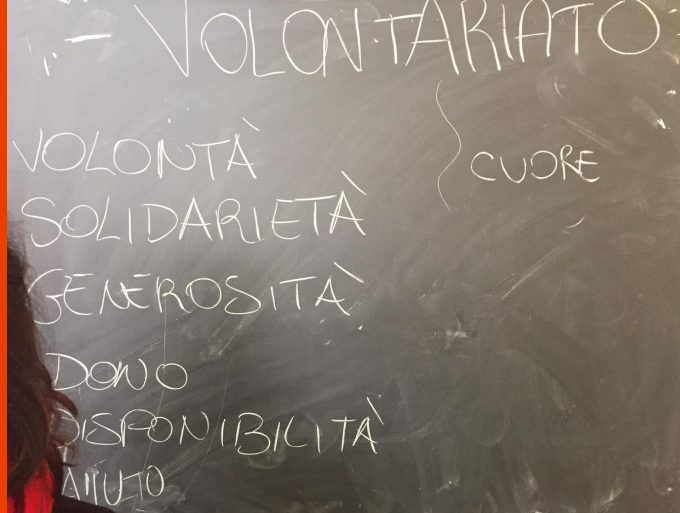 - VOLONTARIATO
VOLONTÀ
CUORE
SOLIDARIETÀ
GENEROSITÀ
DONO
DISPONIBILITÀ
AIUTO